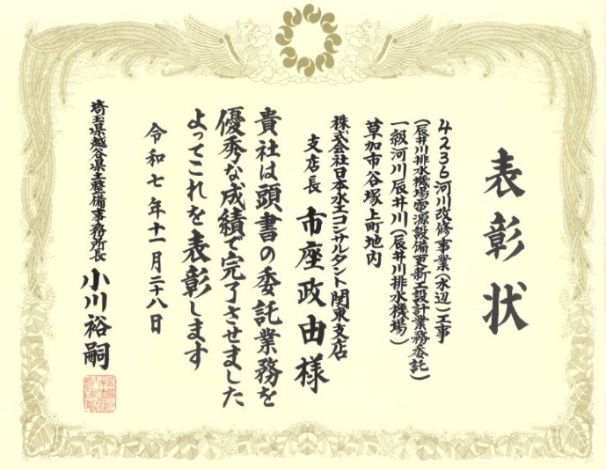 表彰状
4236河川改修事業(水辺)工事
(辰井川排水機場電源設備更新工設計業務委託)
一級河川辰井川(辰井川排水機場)
草加市谷塚上町地内
株式会社日本水工コンサルタント関東支店
支店長 市座政由様
貴社は頭書の委託業務を
優秀な成績で完了させました
よってこれを表彰します
令和七年十一月二十八日
埼玉県越谷県土整備事務所長
小川裕嗣